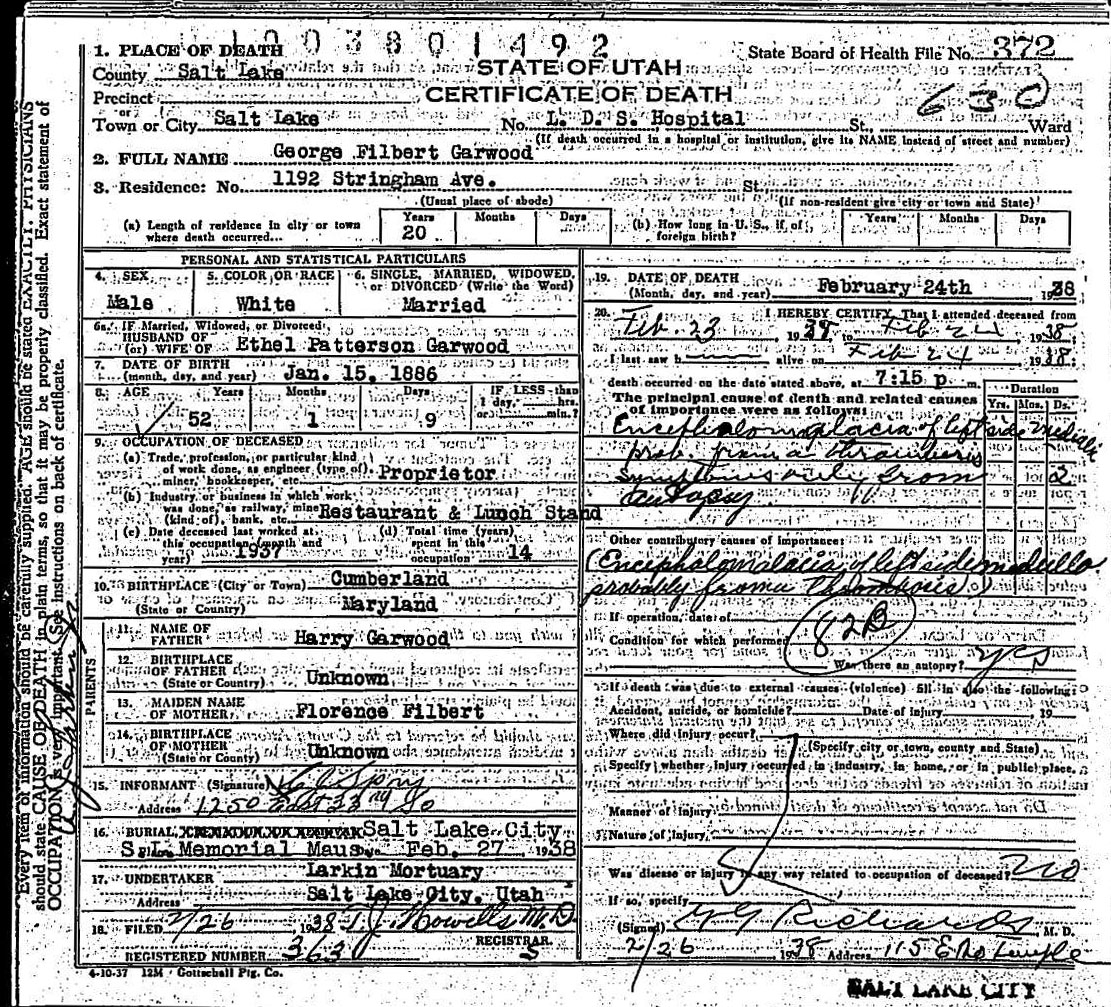 1003801492
1. PLACE OF DEATH
State Board of Health File No. 372
County Salt Lake
STATE OF UTAH
CERTIFICATE OF DEATH
Precinct
or
Town or City Salt Lake No. L. D. S. Hospital St., Ward
630
(If death occurred in a hospital or institution, give its NAME instead of street and number)
2. FULL NAME George Filbert Garwood
3. Residence: No. 1192 Stringham Ave. St.
(Usual place of abode) (If non-resident give city or town and State)
(a) Length of residence in city or town where death occurred... Years 20 Months Days
(b) How long in U. S., if of foreign birth? Years Months Days
PERSONAL AND STATISTICAL PARTICULARS
4. SEX Male
5. COLOR OR RACE White
6. SINGLE, MARRIED, WIDOWED, or DIVORCED (Write the Word) Married
6a. IF Married, Widowed, or Divorced
HUSBAND OF
(or) WIFE OF Ethel Patterson Garwood
7. DATE OF BIRTH
(month, day, and year) Jan. 15, 1886
8. AGE Years 52 Months 1 Days 9 IF LESS than 1 day, hrs. or min.?
9. OCCUPATION OF DECEASED
(a) Trade, profession, or particular kind
of work done, as engineer (type of),
miner, bookkeeper, etc. Proprietor
(b) Industry or business in which work
was done, as railway, mine
(kind of), bank, etc. Restaurant & Lunch Stand
(c) Date deceased last worked at
this occupation (month and
year) 1937
(d) Total time (years)
spent in this
occupation 14
10. BIRTHPLACE (City or Town) Cumberland
(State or Country) Maryland
PARENTS
11. NAME OF
FATHER Harry Garwood
12. BIRTHPLACE
OF FATHER
(State or Country) Unknown
13. MAIDEN NAME
OF MOTHER Florence Filbert
14. BIRTHPLACE
OF MOTHER
(State or Country) Unknown
15. INFORMANT (Signature)
Address 1250 East 33rd So
16. BURIAL, Salt Lake City
S. L. Memorial Maus. Feb. 27 1938
17. UNDERTAKER Larkin Mortuary
Address Salt Lake City, Utah
18. FILED 2/26 1938 T. J. Howells M.D.
REGISTRAR.
REGISTERED NUMBER 363
4-10-37 12M Gottschall Ptg. Co.
19. DATE OF DEATH
(Month, day, and year) February 24th 1938
20. I HEREBY CERTIFY, That I attended deceased from
Feb. 23 1938 to Feb 24 1938
I last saw h alive on Feb 24 1938
death occurred on the date stated above, at 7:15 p m.
The principal cause of death and related causes
of importance were as follows:
Duration
Yrs. Mos. Ds.
Encephalomalacia of left side medulla
prob. from a thrombosis
symptoms only from 2
autopsy
Other contributory causes of importance:
(Encephalomalacia of left side medulla
probably from a thrombosis)
If operation, date of
Condition for which performed
82B
Was there an autopsy? yes
If death was due to external causes (violence) fill in also the following:
Accident, suicide, or homicide? Date of injury 19
Where did injury occur?
(Specify city or town, county and State)
Specify whether injury occurred in industry, in home, or in public place.
Manner of injury
Nature of injury
Was disease or injury in any way related to occupation of deceased? no
If so, specify
(Signed) G G Richards M. D.
2/26 1938 Address 115 E So Temple
SALT LAKE CITY
Every item of information should be carefully supplied. AGE should be stated EXACTLY. PHYSICIANS
should state CAUSE OF DEATH in plain terms, so that it may be properly classified. Exact statement of
OCCUPATION is very important. (See instructions on back of certificate.